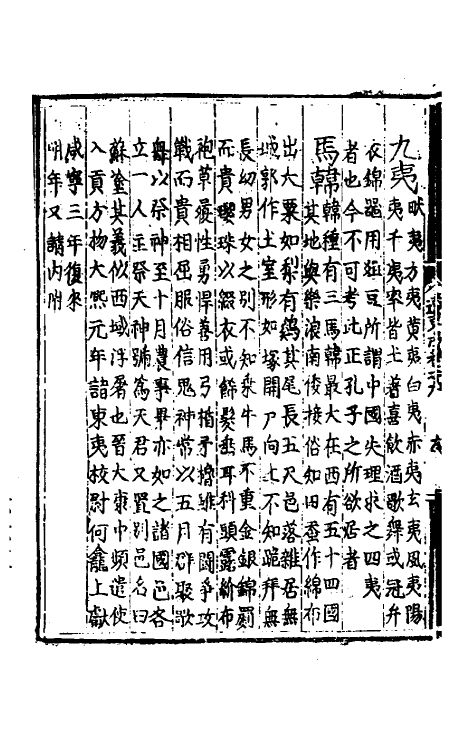 九夷 畎夷方夷黃夷白夷赤夷玄夷風夷陽
夷千夷率皆土著喜飲酒歌舞或冠弁
衣錦器用俎豆所謂中國失理求之四夷
者也今不可考此正孔子之所欲居者
馬韓 韓種有三馬韓最大在西有五十四國
其地與樂浪南倭接俗知田蚕作綿布
出大栗如梨有鷄其尾長五尺邑落雜居無
城郭作土室形如塚開戸向上不知跪拜無
長幼男女之別不知乘牛馬不重金銀錦罽
而貴瓔珠以綴衣或飾髮垂耳科頭露紒布
袍草履性勇悍善用弓楯矛櫓雖有鬪爭攻
戰而貴相屈服俗信鬼神常以五月群聚歌
舞以祭神至十月農事畢亦如之諸國邑各
立一人主祭天神號為天君又置別邑名曰
蘇塗其義似西域浮屠也晉大康中頻遣使
入貢方物大熙元年詣東夷校尉何龕上獻
咸寧三年復來
明年又請內附